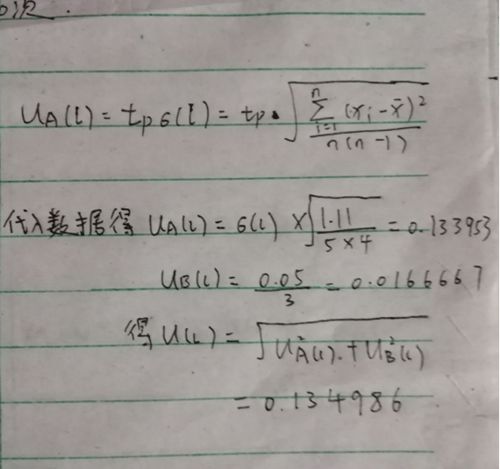 U_A(l) = t_p σ(l) = t_p · √(∑_{i=1}^{n} (x_i - x̄)² / n(n-1))
代入数据得 U_A(l) = σ(l) × √(1.11 / 5×4) = 0.133953
U_B(l) = 0.05 / 3 = 0.0166667
得 U(l) = √(U_A²(l) + U_B²(l))
= 0.134986